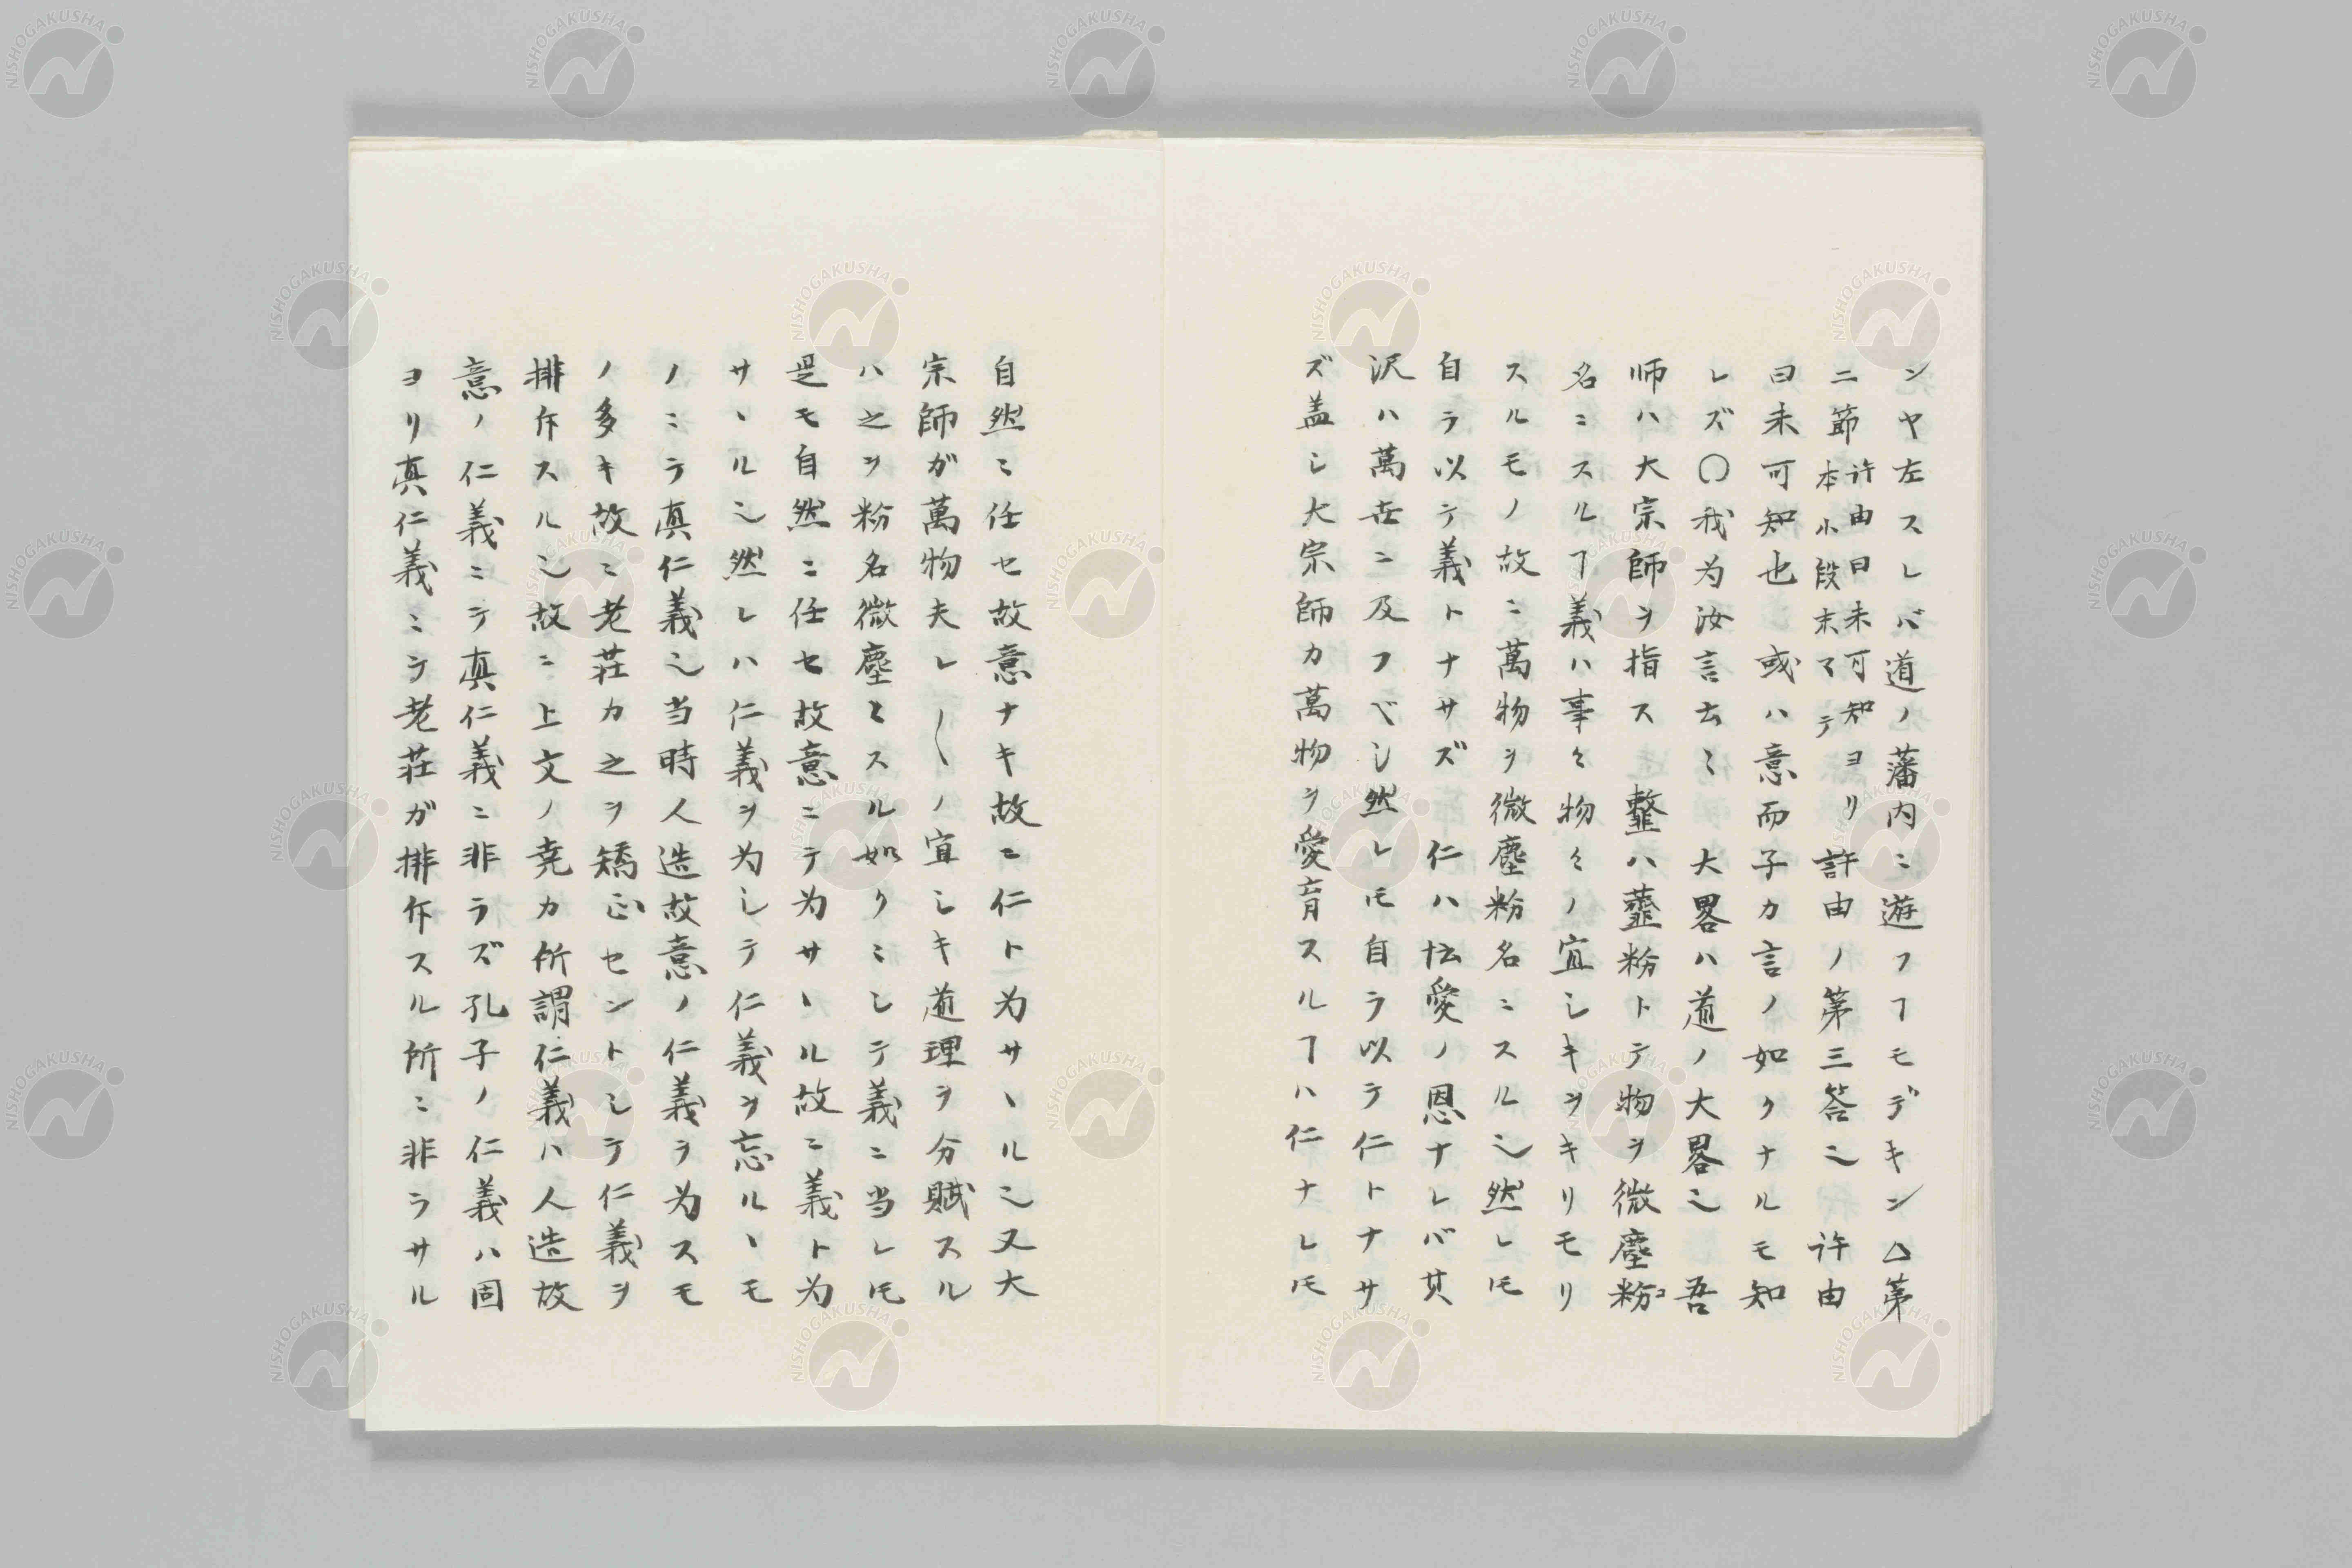 ンヤ左スレバ道ノ藩内ニ遊フヿモデキン△第
二節許由曰未可知ヨリ本小段末マテ許由ノ第三答〻許由
曰未可知也或ハ意而子カ言ノ如クナルモ知
レズ〇我为汝言去〻大畧ハ道ノ大畧〻吾
师ハ大宗師ヲ指ス䪠ハ虀粉トテ物ヲ微塵粉コ
名ニスルヿ義ハ事〻物〻ノ宜シキヲキリモリ
スルモノ故ニ萬物ヲ微塵粉名ニスル〻然レ𪜈
自ラ以テ義トナサズ仁ハ忲愛ノ恩ナレバ其
沢ハ萬世ニ及フベシ然レ𪜈自ラ以テ仁トナサ
ズ盖シ大宗師カ萬物ヲ愛育スルヿハ仁ナレ𪜈
自然ニ任セ故意ナキ故ニ仁ト为サヽル〻又大
宗師ガ萬物夫レ〱ノ宜シキ道理ヲ分賦スル
ハ之ヲ粉名微塵ミスル如クミシテ義ニ当レ𪜈
是モ自然ニ任セ故意ニテ为サヽル故ニ義ト为
サヽル〻然レハ仁義ヲ为シテ仁義ヲ忘ルヽモ
ノニテ真仁義〻当時人造故意ノ仁義ヲ为スモ
ノ多キ故ニ老荘カ之ヲ矯正セントシテ仁義ヲ
排斥スル〻故ニ上文ノ尭カ所謂仁義ハ人造故
意ノ仁義ニテ真仁義ニ非ラズ孔子ノ仁義ハ固
ヨリ真仁義ミテ老荘ガ排斥スル所ニ非ラサル